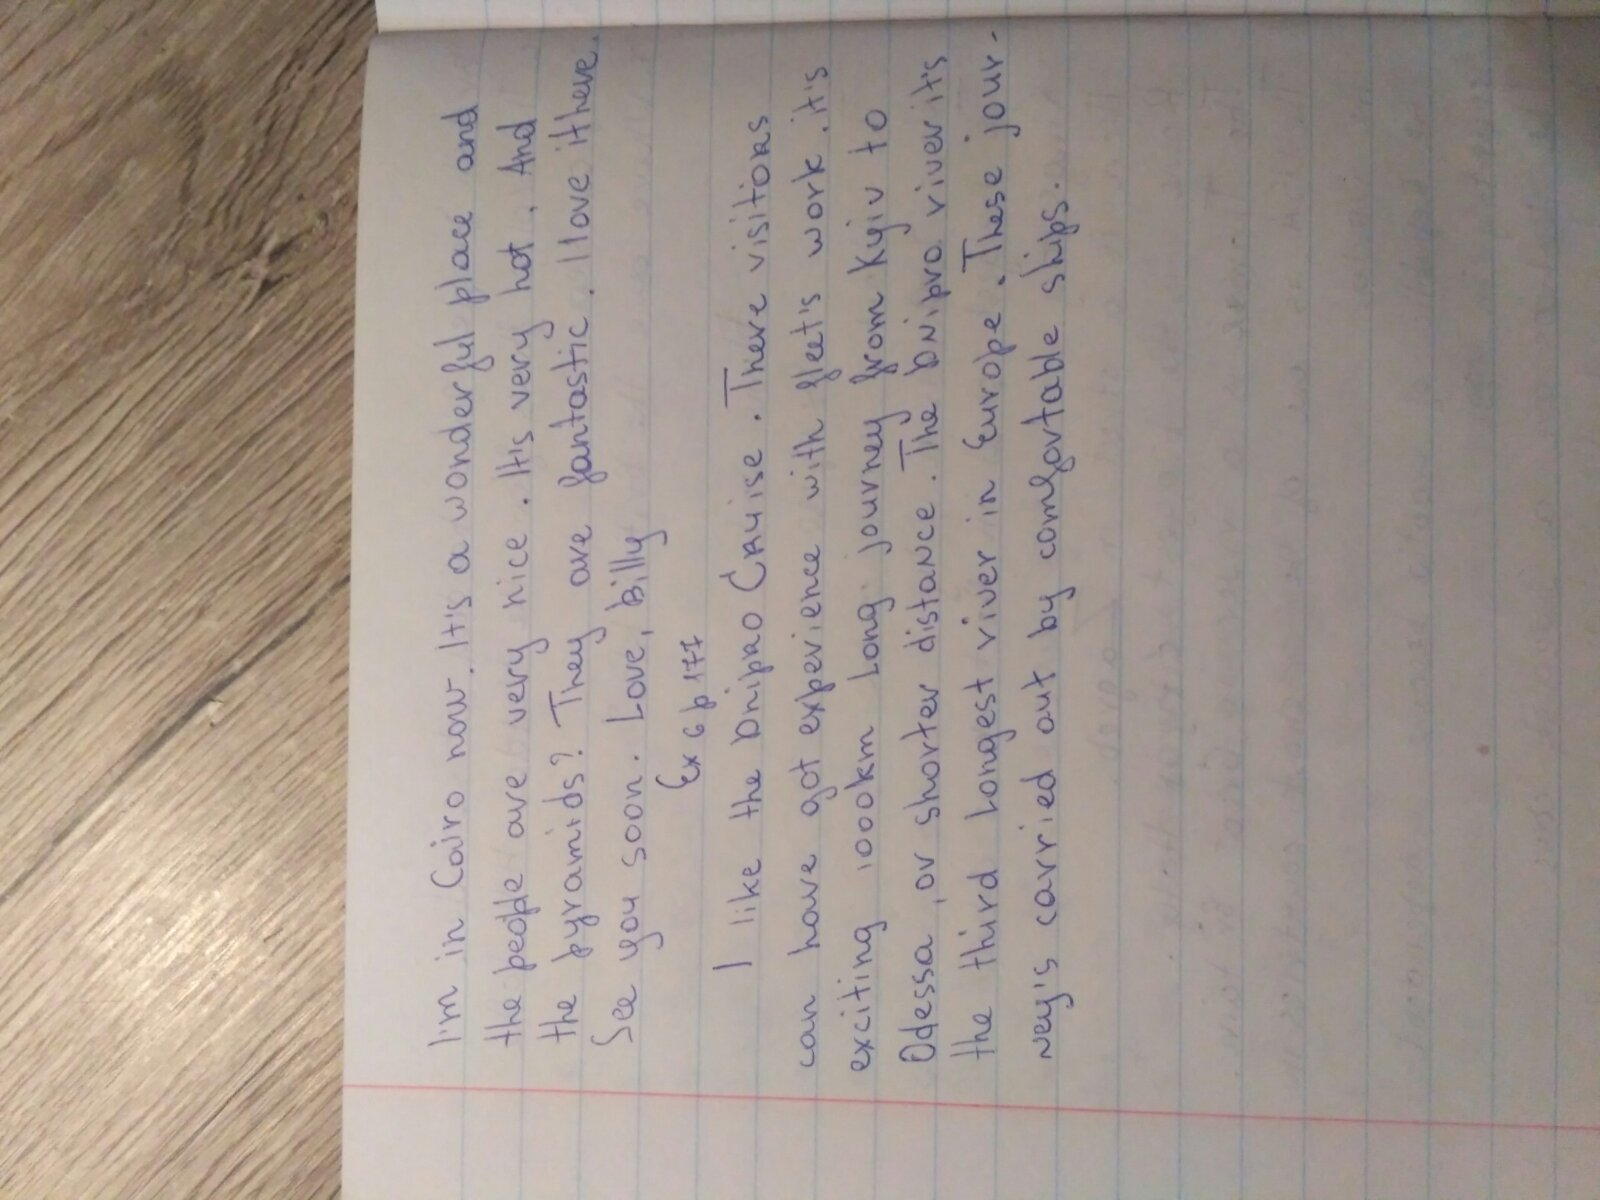 I'm in Cairo now. It's a wonderful place and
the people are very nice. It's very hot. And
the pyramids? They are fantastic. I love it here.
See you soon. Love, Billy
Ex 6 p 177
I like the Dnipro Cruise. There visitors
can have got experience with fleet's work. it's
exciting 1000km Long journey from Kyiv to
Odessa, or shorter distance. The Dnipro river it's
the third Longest river in Europe. These jour-
ney's carried out by comfortable ships.